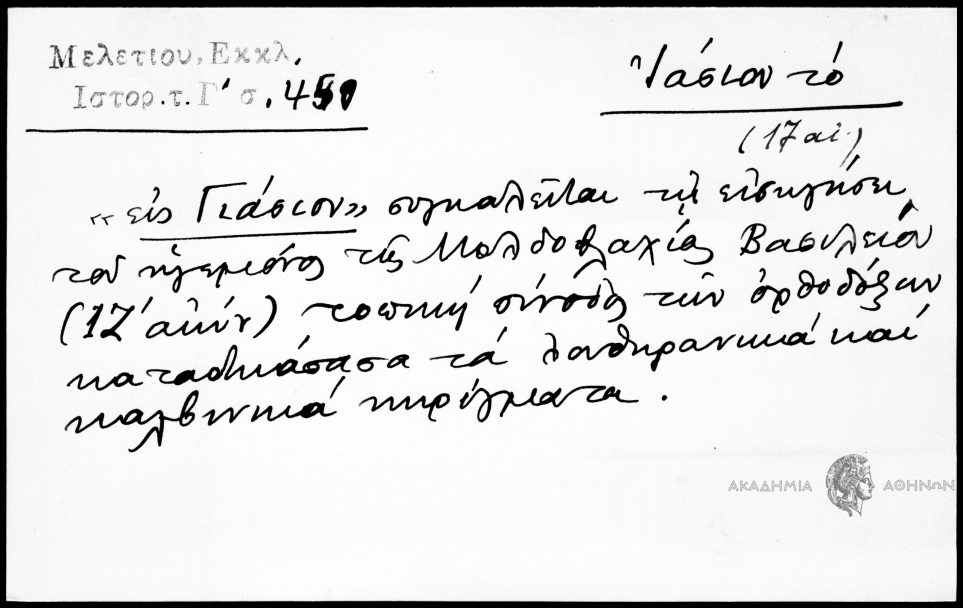 Μελετίου, Εκκλ.
Ἰστορ. τ. Γ' σ. 451
Ἰάσιον τό
(17 αἰ.)
"εἰς Γιάσιον" συγκαλεῖται τῇ εἰσηγήσει
τοῦ ἡγεμόνος τῆς Μολδοβλαχίας Βασιλείου
(17 αἰών) τοπική σύνοδος τῶν ὀρθοδόξων
καταδικάσασα τά λουθηρανικά καί
καλβινικά κηρύγματα.
ΑΚΑΔΗΜΙΑ ΑΘΗΝΩΝ